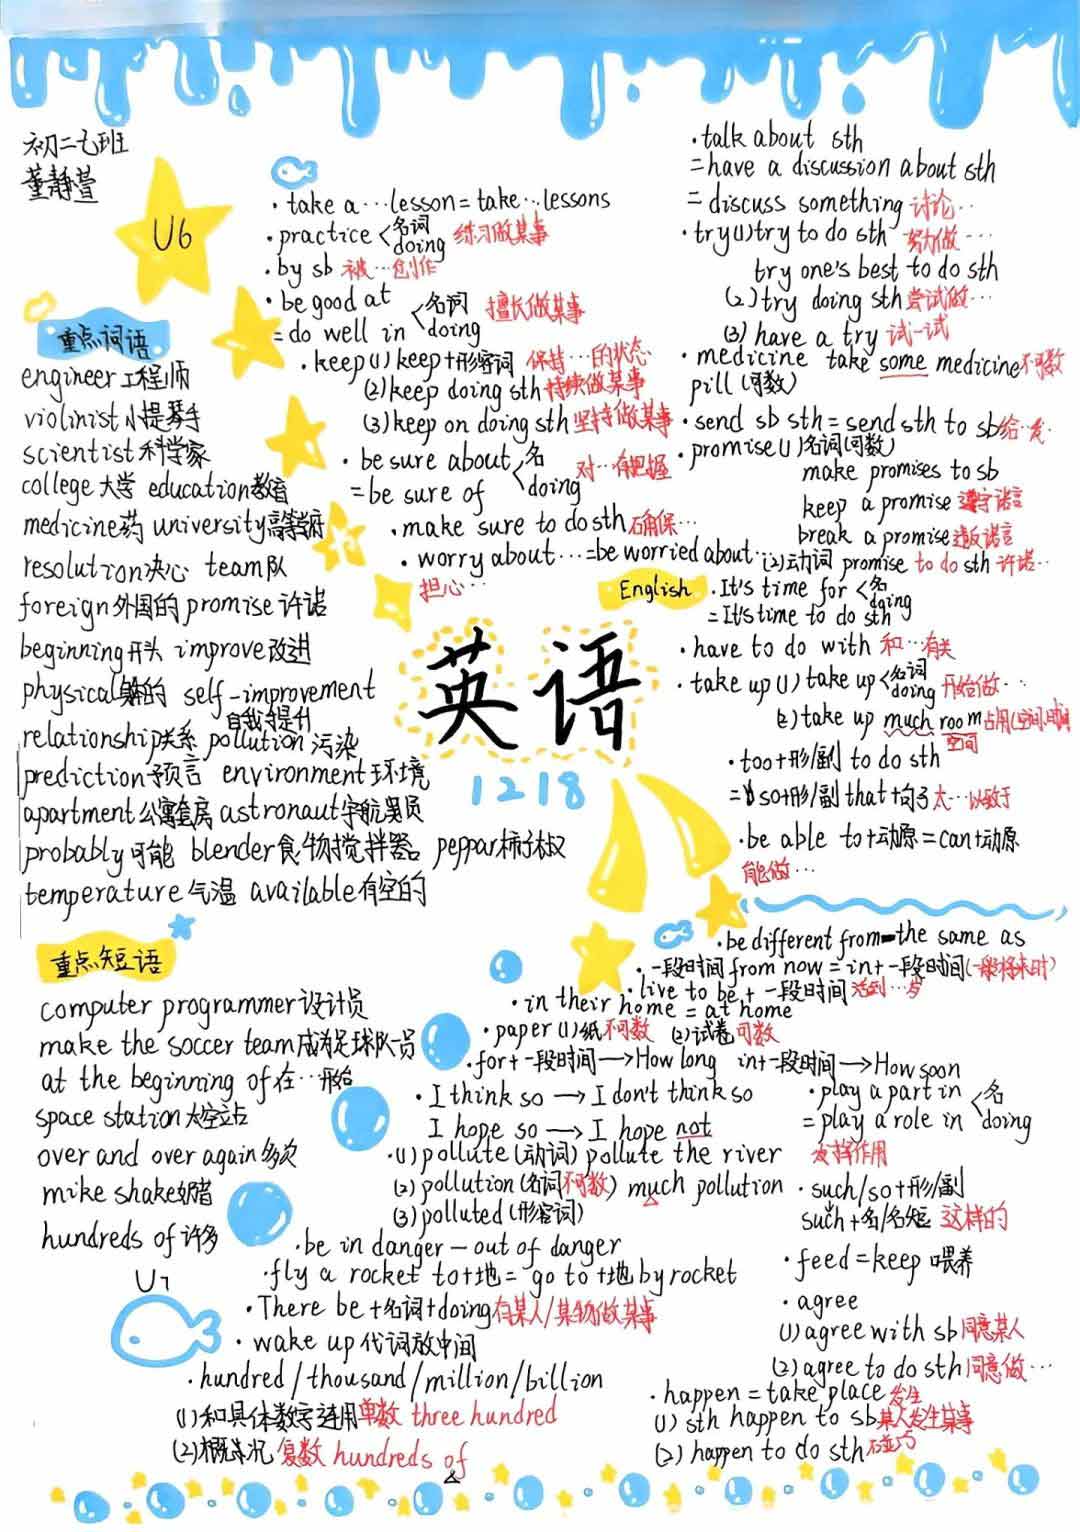 初二七班
董静萱
U6
· take a … lesson = take … lessons
· practice < 名词 doing 练习做某事
· by sb 被…创作
· be good at
= do well in < 名词 doing 擅长做某事
· keep (1) keep+形容词 保持…的状态
(2) keep doing sth 持续做某事
(3) keep on doing sth 坚持做某事
· be sure about
= be sure of < 名 doing 对…有把握
· make sure to do sth 确保…
· worry about … = be worried about …
担心…
· talk about sth
= have a discussion about sth
= discuss something 讨论…
· try (1) try to do sth 努力做…
try one's best to do sth
(2) try doing sth 尝试做…
(3) have a try 试一试
· medicine take some medicine 不可数
pill (可数)
· send sb sth = send sth to sb 给…发
· promise (1) 名词(可数)
make promises to sb
keep a promise 遵守诺言
break a promise 违反诺言
(2) 动词 promise to do sth 许诺…
English
· It's time for < 名 doing
= It's time to do sth
· have to do with 和…有关
· take up (1) take up < 名词 doing 开始做…
(2) take up much room 占用(空间、时间)
空间
· too+形/副 to do sth
= so+形/副 that+句子 太…以致于
· be able to+动原 = can+动原
能做…
重点词语
engineer 工程师
violinist 小提琴手
scientist 科学家
college 大学 education 教育
medicine 药 university 高等学府
resolution 决心 team 队
foreign 外国的 promise 许诺
beginning 开头 improve 改进
physical 身体的 self-improvement
自我提升
relationship 关系 pollution 污染
prediction 预言 environment 环境
apartment 公寓套房 astronaut 宇航员
probably 可能 blender 食物搅拌器 peppar 柿子椒
temperature 气温 available 有空的
英语
1218
重点短语
computer programmer 设计员
make the soccer team 成为足球队一员
at the beginning of 在…开始
space station 太空站
over and over again 多次
mike shake 奶昔
hundreds of 许多
U7
· be different from — the same as
· 一段时间 from now = in+一段时间 (一般将来时)
· live to be + 一段时间 活到…岁
· in their home = at home
· paper (1) 纸 不可数 (2) 试卷 可数
· for+一段时间 → How long in+一段时间 → How soon
· I think so → I don't think so
I hope so → I hope not
· (1) pollute (动词) pollute the river
(2) pollution (名词不可数) much pollution
(3) polluted (形容词)
· be in danger — out of danger
· fly a rocket to+地 = go to+地 by rocket
· There be+名词+doing 有某人/某物做某事
· wake up 代词放中间
· hundred/thousand/million/billion
(1) 和具体数字连用 单数 three hundred
(2) 概况 复数 hundreds of
· play a part in
= play a role in < 名 doing
发挥作用
· such/so+形/副
such+名/名短 这样的
· feed = keep 喂养
· agree
(1) agree with sb 同意某人
(2) agree to do sth 同意做…
· happen = take place 发生
(1) sth happen to sb 某人发生某事
(2) happen to do sth 碰巧